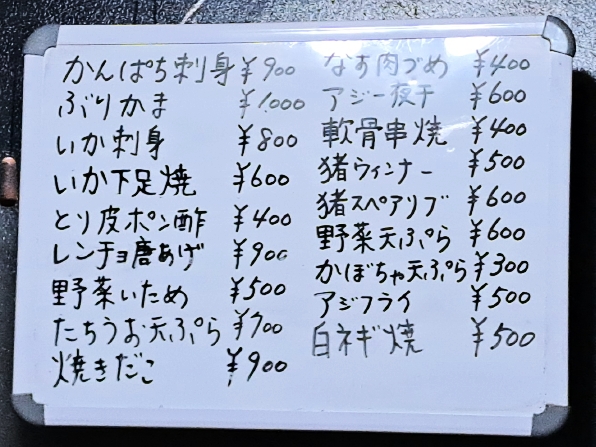 かんぱち刺身 ¥900
ぶりかま ¥1000
いか刺身 ¥800
いか下足焼 ¥600
とり皮ポン酢 ¥400
レンチョ唐あげ ¥900
野菜いため ¥500
たちうお天ぷら ¥700
焼きだこ ¥900
なす肉づめ ¥400
アジ一夜干 ¥600
軟骨串焼 ¥400
猪ウィンナー ¥500
猪スペアリブ ¥600
野菜天ぷら ¥600
かぼちゃ天ぷら ¥300
アジフライ ¥500
白ネギ焼 ¥500